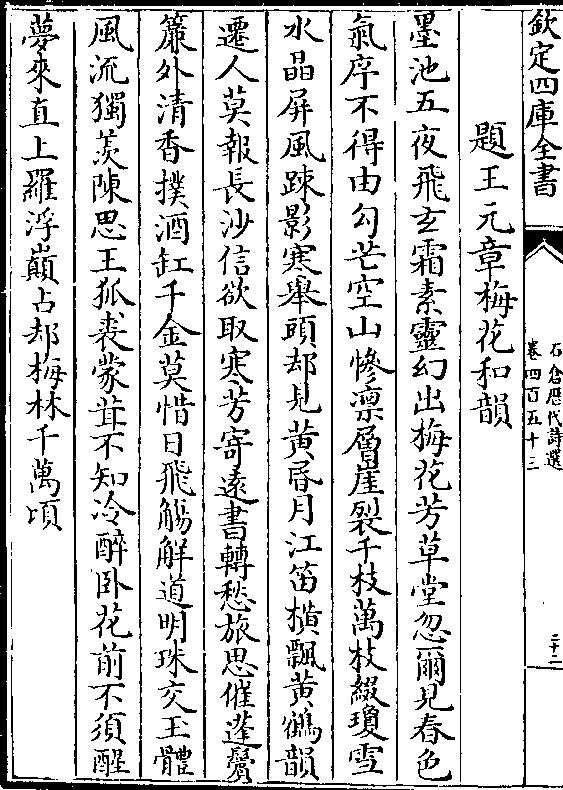 欽定四庫全書
石倉歷代詩選
卷四百五十三
二十二
題王元章梅花和韻
墨池五夜飛玄霜素靈幻出梅花芳草堂忽爾見春色
氣序不得由勾芒空山慘凛層崖裂千枝萬枝綴瓊雪
水晶屏風踈影寒舉頭却見黃昏月江笛橫飄黃鶴韻
遷人莫報長沙信欲取寒芳寄遠書轉愁旅思催蓬鬢
簾外清香撲酒缸千金莫惜日飛觴解道明珠交玉體
風流獨羡陳思王狐裘蒙茸不知冷醉卧花前不須醒
夢來直上羅浮巔占却梅林千萬頃